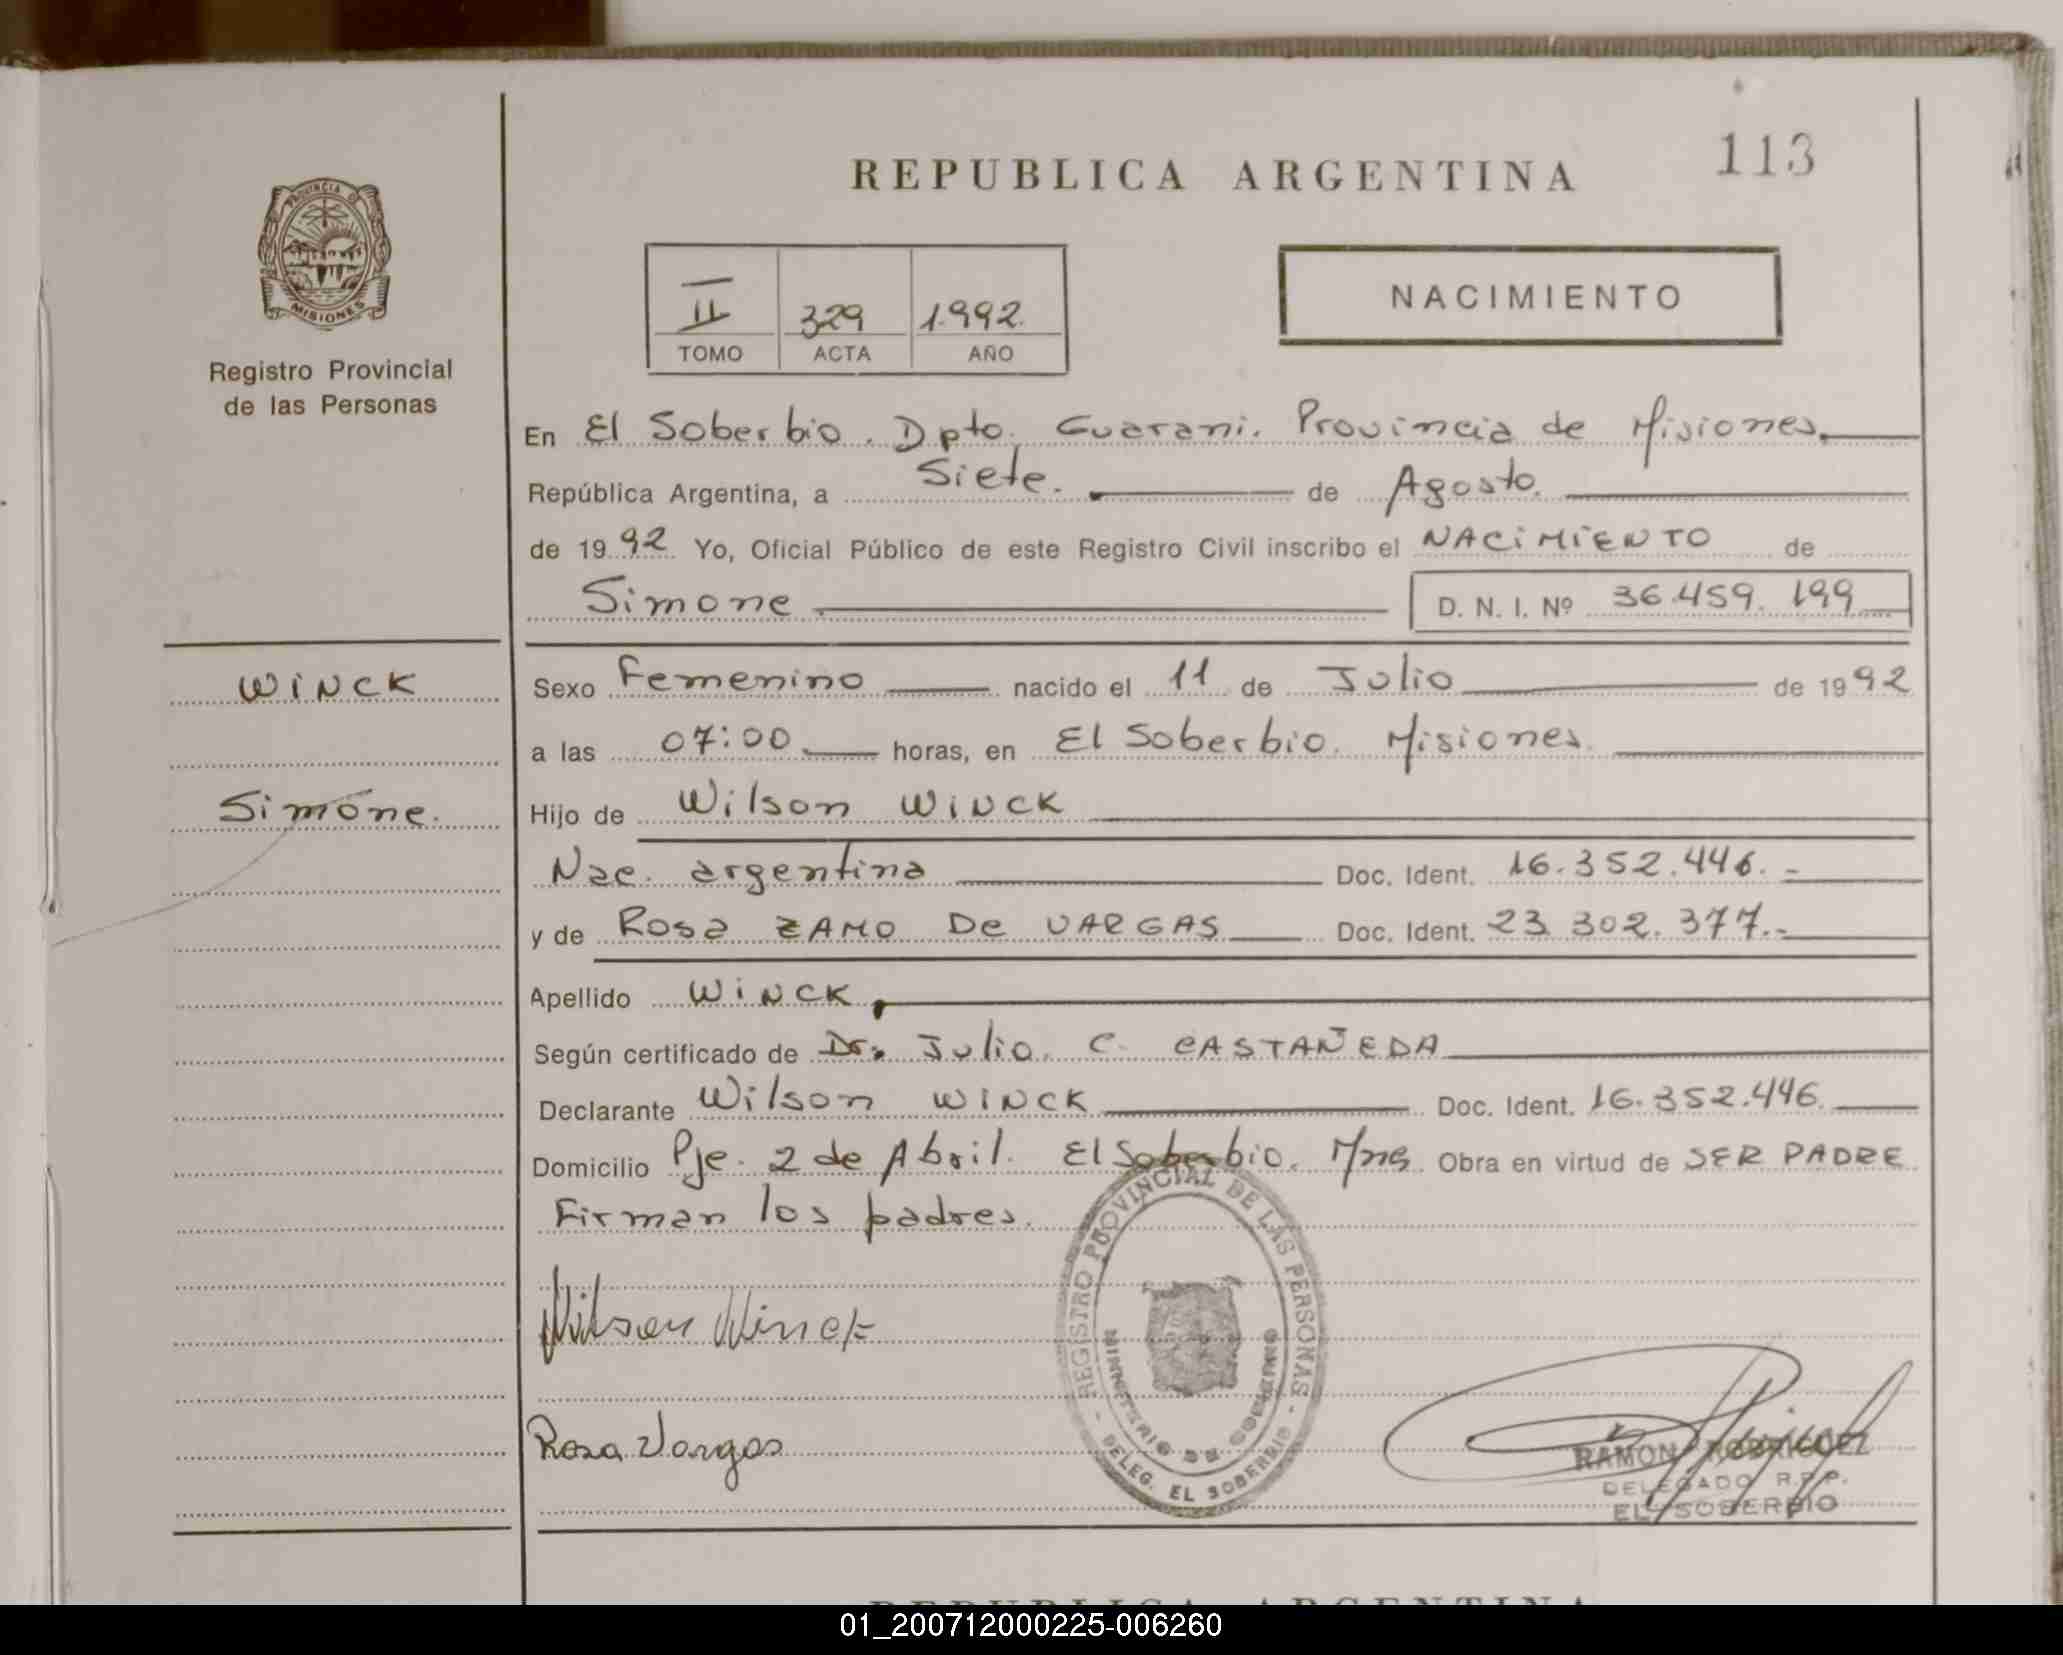 REPUBLICA ARGENTINA
113
PROVINCIA DE
MISIONES
Registro Provincial
de las Personas
II 329 1.992.
TOMO ACTA AÑO
NACIMIENTO
En El Soberbio. Dpto. Guarani. Provincia de Misiones.
República Argentina, a Siete. de Agosto.
de 19 92 Yo, Oficial Público de este Registro Civil inscribo el NACIMIENTO de
Simone D. N. I. Nº 36.459.199
WINCK
Simone.
Sexo Femenino nacido el 11 de Julio de 19 92
a las 07:00 horas, en El Soberbio. Misiones.
Hijo de Wilson WINCK
Nac. argentina Doc. Ident. 16.352.446.-
y de Rosa ZAMO De VARGAS Doc. Ident. 23.302.377.-
Apellido WINCK,
Según certificado de Dr. Julio. C. CASTAÑEDA
Declarante Wilson WINCK Doc. Ident. 16.352.446.
Domicilio Pje. 2 de Abril. El Soberbio. Mnes Obra en virtud de SER PADRE
Firman los padres.
Wilson Winck
Rosa Vargas
REGISTRO PROVINCIAL DE LAS PERSONAS
MINISTERIO DE GOBIERNO
- DELEG. EL SOBERBIO -
RAMON RODRIGUEZ
DELEGADO R.P.P.
EL SOBERBIO
REPUBLICA ARGENTINA
01_200712000225-006260